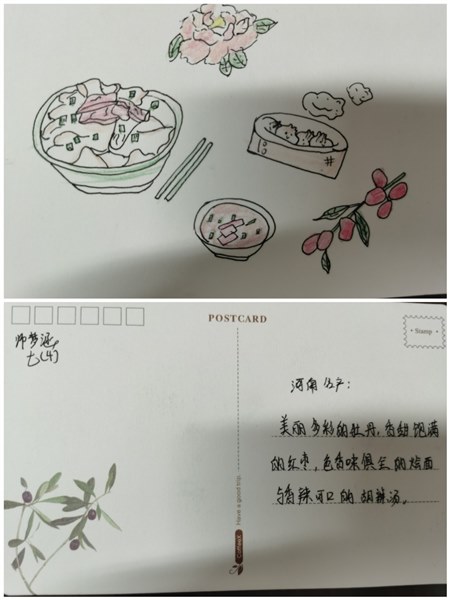 POSTCARD
Stamp
师梦涵
七(4)
河南馆产:
美丽多彩的牡丹,香甜饱满
的红枣,色香味俱全的烩面
与香辣可口的胡辣汤。
Have a good trip.